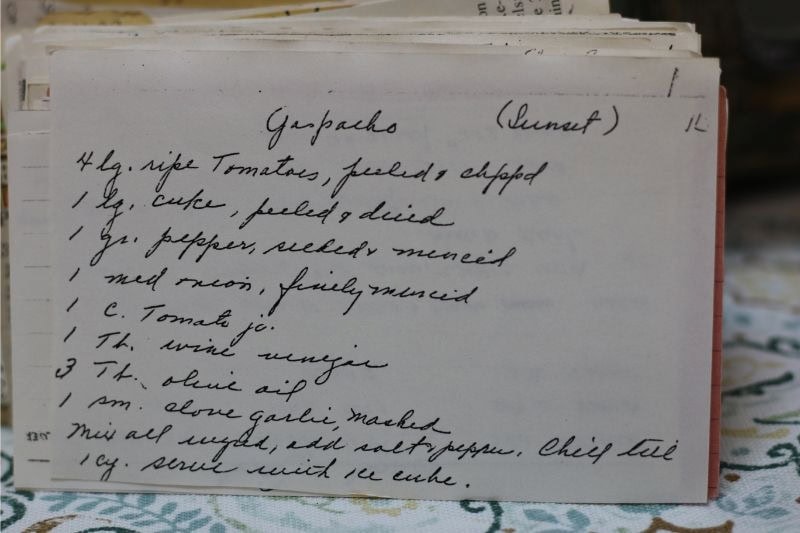 Gaspacho (Sunset)
4 lg. ripe Tomatoes, peeled & chppd
1 lg. cuke, peeled & diced
1 gr. pepper, seeded & minced
1 med onion, finely minced
1 c. Tomato jc.
1 Tb. wine vinegar
3 Tb. olive oil
1 sm. clove garlic, mashed
Mix all ingred, add salt & pepper. Chill till
icy. serve with ice cube.